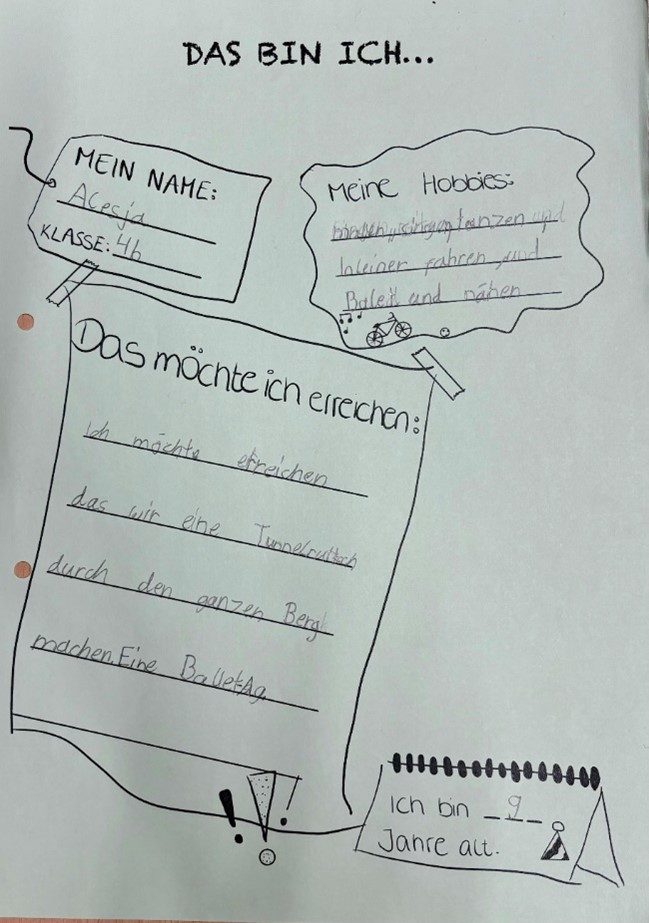 DAS BIN ICH...
MEIN NAME:
Alesja
KLASSE: 4b
Meine Hobbies:
tanzen und
Inleiner fahren und
Balett und nähen
Das möchte ich erreichen:
Ich möchte erreichen
das wir eine Tunnelrutsch
durch den ganzen Berg
machen. Eine Ballet-Ag
Ich bin 9
Jahre alt.